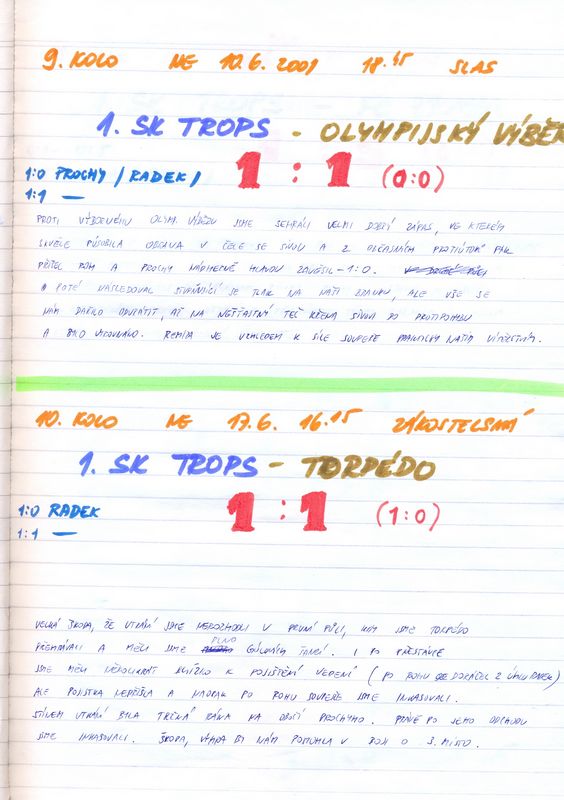 9. KOLO NE 10.6. 2001 18.45 SLAS
1. SK TROPS - OLYMPIJSKÝ VÝBĚR
1:0 PROCHY /RADEK/
1 : 1 (0:0)
1:1 —
PROTI OLYM. VÝBĚRU JSME SEHRÁLI VELMI DOBRÝ ZÁPAS, VE KTERÉM
SKVĚLE PŮSOBILA OBRANA V ČELE SE SIVOU A Z OBČASNÝCH PROTIÚTOKŮ PAK
PŘIŠEL ROH A PROCHY NÁDHERNĚ HLAVOU ZAVĚSIL - 1:0.
A POTÉ NÁSLEDOVAL STUPŇUJÍCÍ SE TLAK NA NAŠI BRANKU, ALE VŠE SE
NÁM DAŘILO ODVRÁTIT, AŽ NA NEŠŤASTNÝ TEČ SIVOU DO PROTIPOHYBU
A BYLO VYROVNÁNO. REMÍZA JE VZHLEDEM K SÍLE SOUPEŘE PRAKTICKY NAŠÍM VÍTĚZSTVÍM.
10. KOLO NE 17.6. 16.15 ZÁKOSTELSKÁ
1. SK TROPS - TORPÉDO
1:0 RADEK
1 : 1 (1:0)
1:1 —
VELKÁ ŠKODA, ŽE UTKÁNÍ JSME NEROZHODLI V PRVNÍ PŮLI, KDY JSME TORPÉDO
PŘEHRÁVALI A MĚLI JSME PLNO GÓLOVÝCH ŠANCÍ. I PO PŘESTÁVCE
JSME MĚLI NĚKOLIKRÁT BLÍZKO K POJIŠTĚNÍ VEDENÍ (PO ROHU DORÁŽEL Z ÚHLU RADEK)
ALE POJISTKA NEPŘIŠLA A NAOPAK PO ROHU SOUPEŘE JSME INKASOVALI.
STÍNEM UTKÁNÍ BYLA TRŽNÁ RÁNA NA OBOČÍ PROCHYHO. PRÁVĚ PO JEHO ODCHODU
JSME INKASOVALI. ŠKODA, VÝHRA BY NÁM POMOHLA V BOJI O 3. MÍSTO.